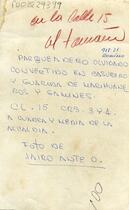 en la Calle 15
al tamaño
PARQUEADERO OLVIDADO
CONVERTIDO EN BASURERO
Y GUARIDA DE MARIHUANE
ROS Y GAMINES.
CL. 15 CRS. 3 Y 4.
A CUADRA Y MEDIA DE LA
ALCALDIA.
FOTO DE
JAIRO